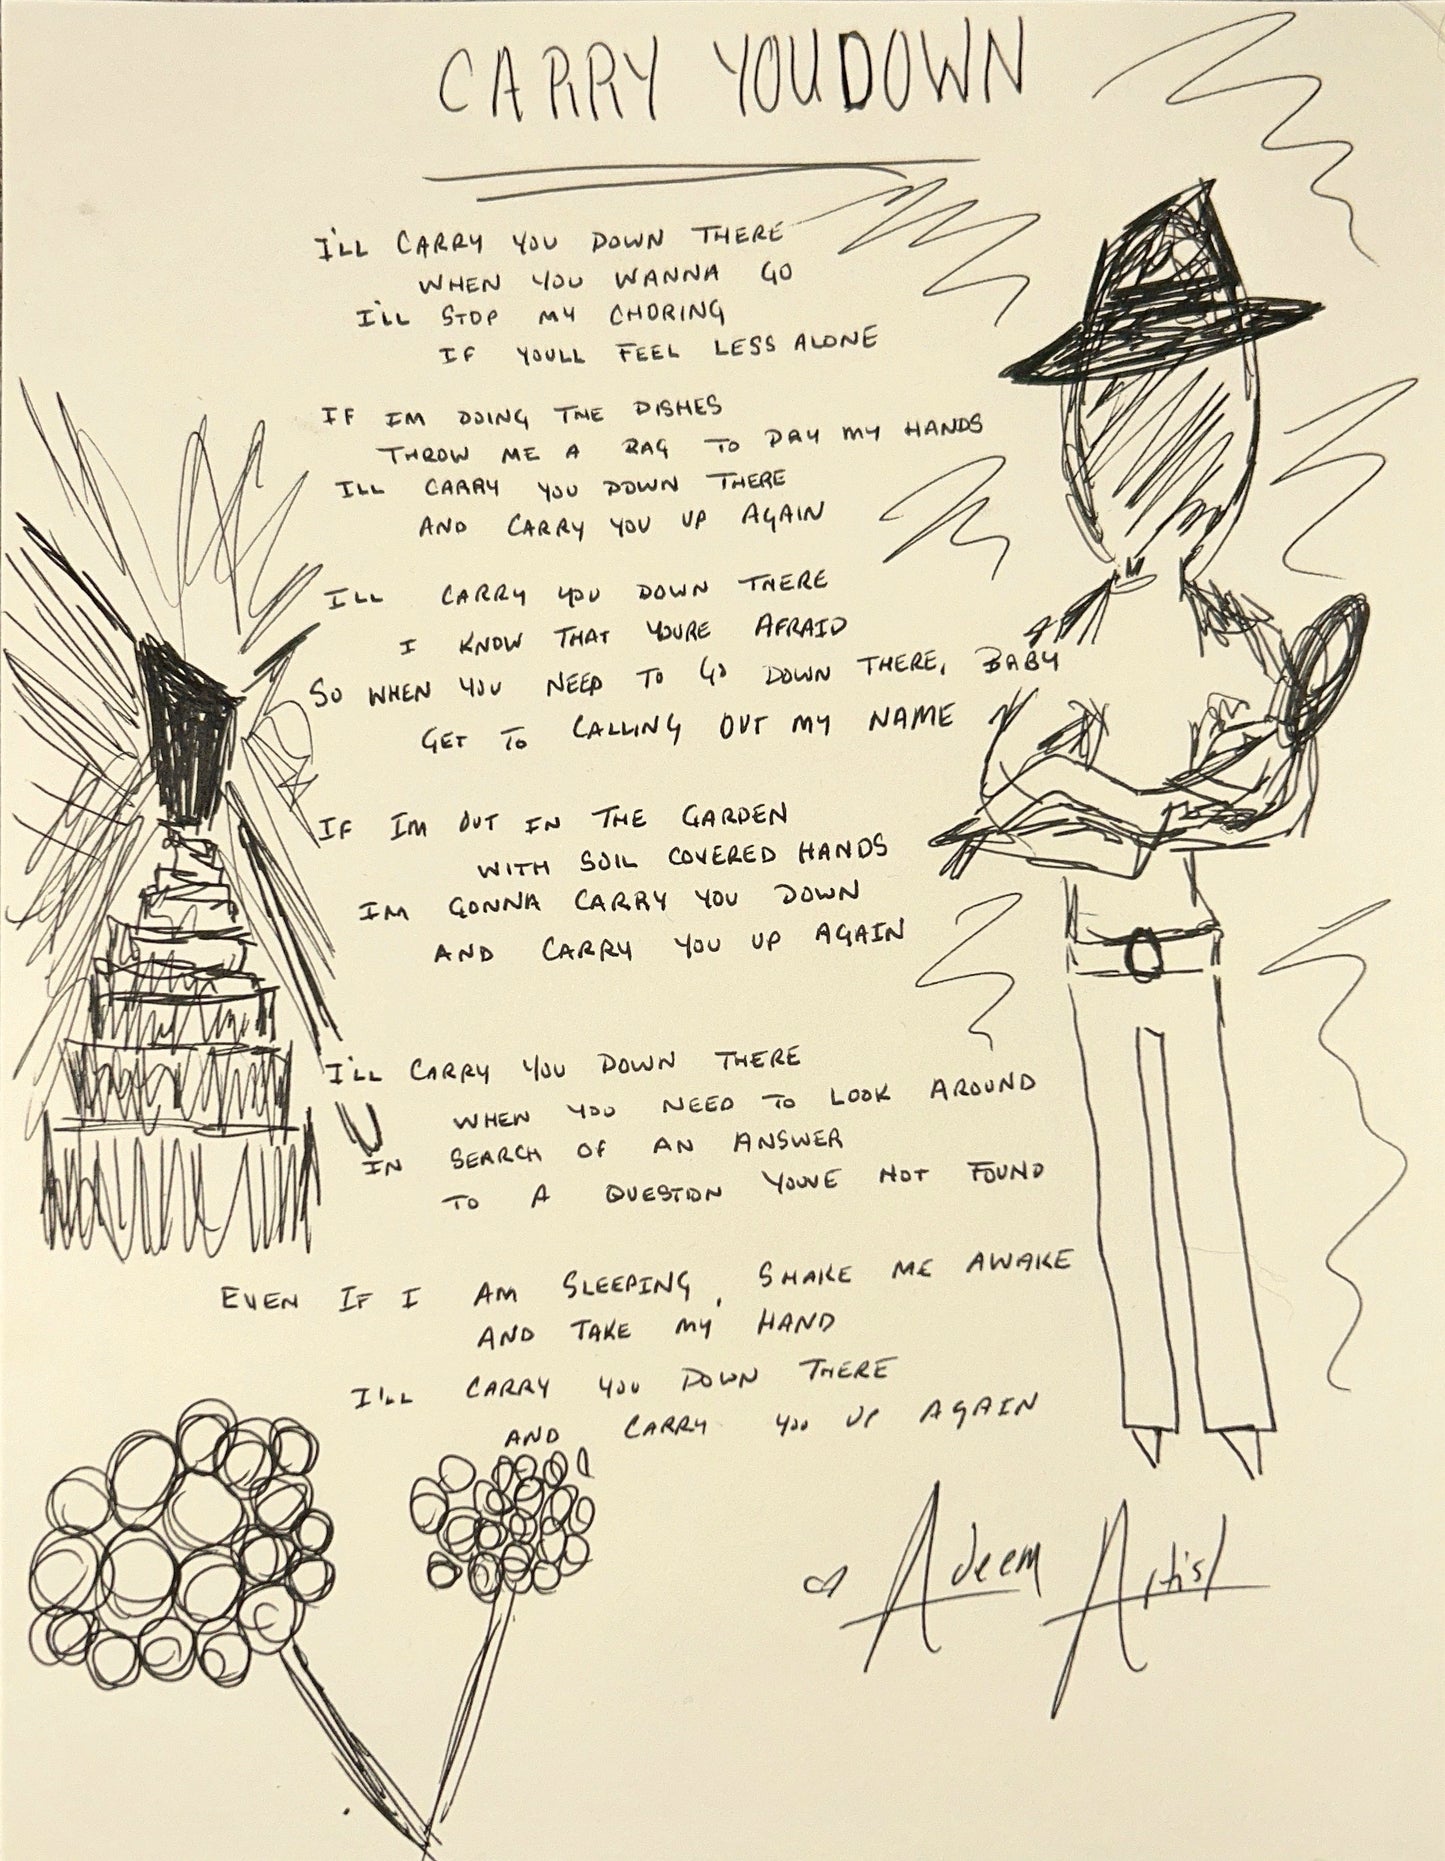 CARRY YOU DOWN
I'LL CARRY YOU DOWN THERE
WHEN YOU WANNA GO
I'LL STOP MY CHORING
IF YOULL FEEL LESS ALONE
IF IM DOING THE DISHES
THROW ME A RAG TO DRY MY HANDS
ILL CARRY YOU DOWN THERE
AND CARRY YOU UP AGAIN
ILL CARRY YOU DOWN THERE
I KNOW THAT YOURE AFRAID
SO WHEN YOU NEED TO GO DOWN THERE, BABY
GET TO CALLING OUT MY NAME
IF IM OUT IN THE GARDEN
WITH SOIL COVERED HANDS
IM GONNA CARRY YOU DOWN
AND CARRY YOU UP AGAIN
I'LL CARRY YOU DOWN THERE
WHEN YOU NEED TO LOOK AROUND
IN SEARCH OF AN ANSWER
TO A QUESTION YOUVE NOT FOUND
EVEN IF I AM SLEEPING, SHAKE ME AWAKE
AND TAKE MY HAND
I'LL CARRY YOU DOWN THERE
AND CARRY YOU UP AGAIN
Adeem Artist